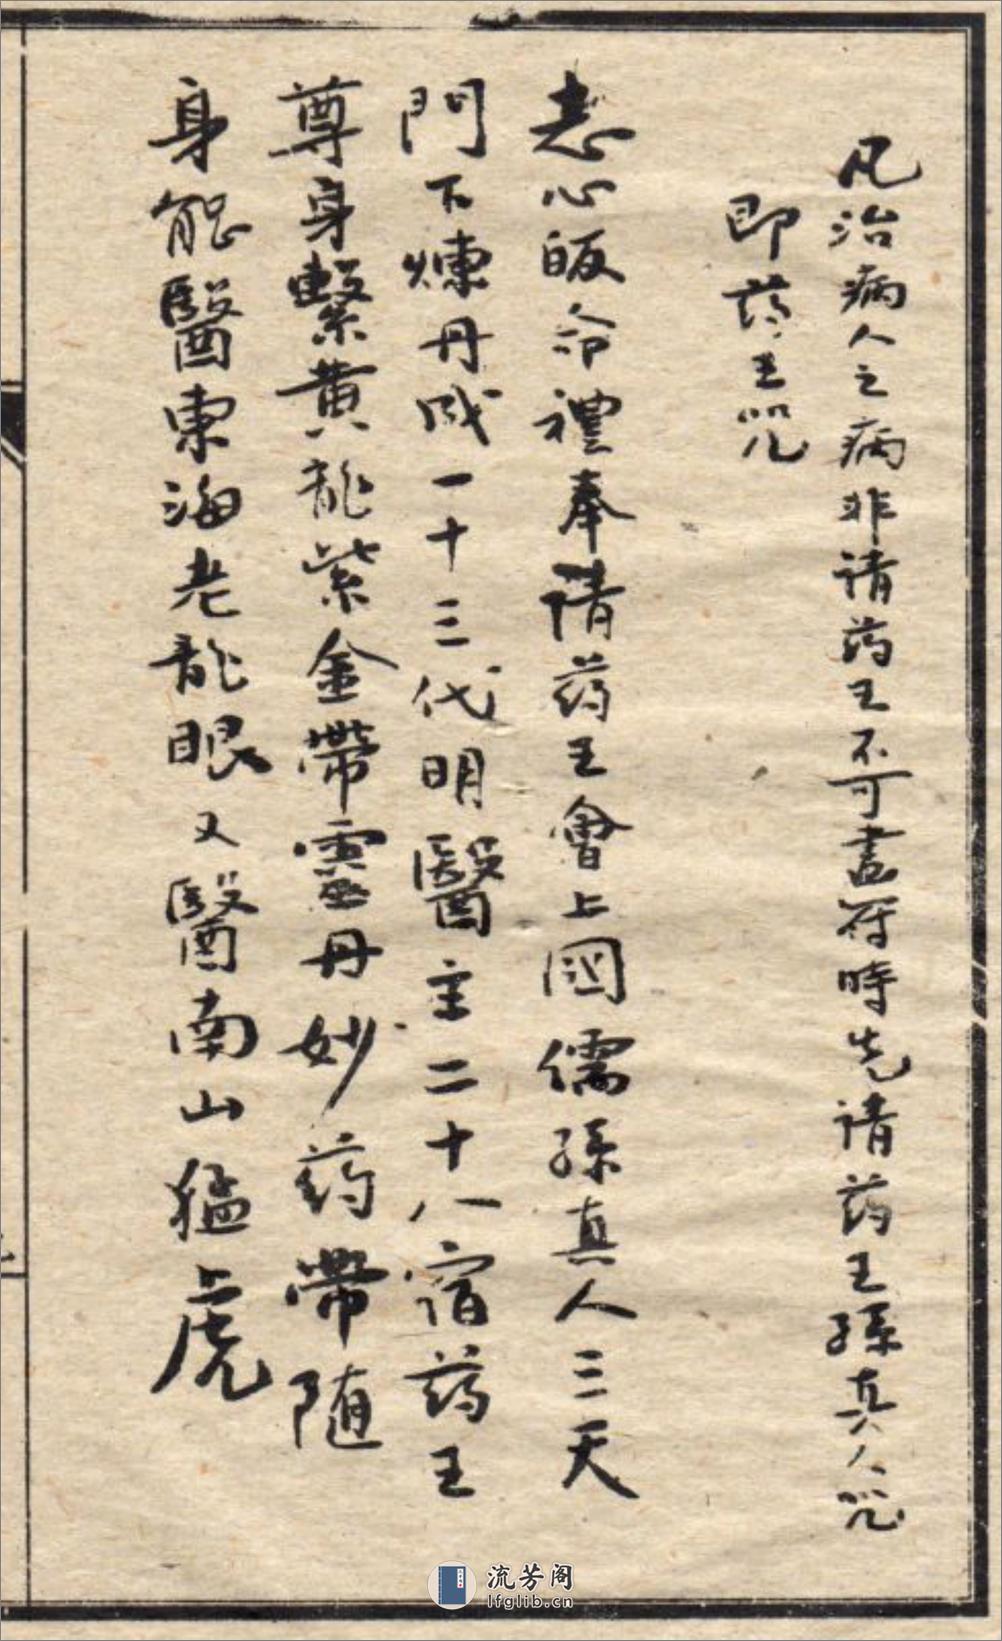 凡治病人之病非请药王不可畫符時先请药王孫真人咒
即药王咒
志心皈命禮奉请药王會上國儒孫真人三天
門下煉丹成一十三代明醫主二十八宿药王
尊身繫黄龍紫金帶靈丹妙药帶随
身能醫東海老龍眼又醫南山猛虎
流芳阁
lfglib.cn